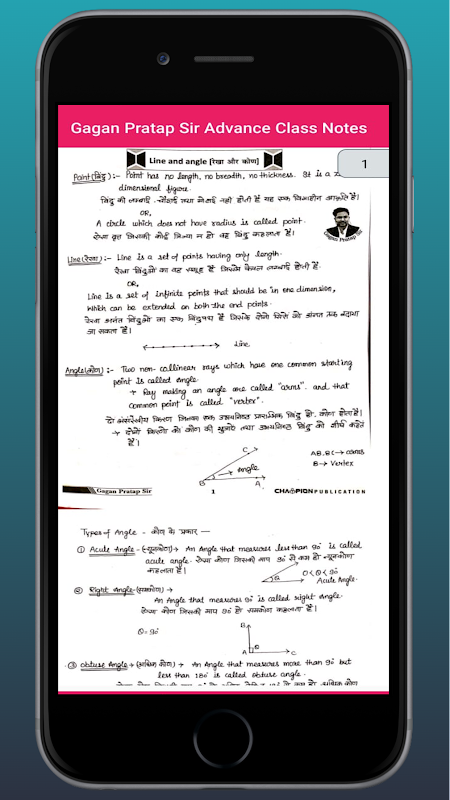 Gagan Pratap Sir Advance Class Notes
1
Line and angle [रेखा और कोण]
Point(बिंदु) :- Point has no length, no breadth, no thickness. It is a
dimensional figure.
बिंदु की लम्बाई नहीं होती है यह एक विमाहीन आकृति है।
OR,
A circle which does not have radius is called point.
ऐसा वृत्त जिसकी कोई त्रिज्या न हो वह बिंदु कहलाता है।
Gagan Pratap Sir
Line(रेखा) :- Line is a set of points having only length.
रेखा बिंदुओं का वह समूह है जिसमें केवल लम्बाई होती है.
OR,
Line is a set of infinite points that should be in one dimension,
which can be extended on both the end points.
रेखा अनंत बिंदुओं का एक है जिसके दोनों सिरों को अनंत तक बढ़ाया
जा सकता है।
Line
Angle(कोण) :- Two non-collinear rays which have one common starting
point is called angle.
→ Ray making an angle are called "arms". and that
common point is called "vertex".
दो असंरेखीय किरण जिनका एक उभयनिष्ठ प्रारंभिक बिंदु हो, कोण होता है।
→ दोनों किरणों को कोण की भुजाएं तथा उभयनिष्ठ बिंदु को शीर्ष कहते
हैं।
C
Angle
B
A
AB, BC → arms
B → Vertex
Gagan Pratap Sir
1
CHAMPION PUBLICATION
Types of Angle - कोण के प्रकार —
① Acute Angle - (न्यूनकोण) → An Angle that measures less than 90° is called
acute angle. ऐसा कोण जिसकी माप 90° से कम हो न्यूनकोण
कहलाता है।
θ
0 < θ < 90
Acute Angle.
② Right Angle-(समकोण) →
An Angle that measures 90° is called right angle.
ऐसा कोण जिसकी माप 90° हो समकोण कहलाता है।
θ = 90°
B
A
θ
C
③ Obtuse Angle → (अधिक कोण) → An Angle that measures more than 90° but
less than 180° is called obtuse angle.